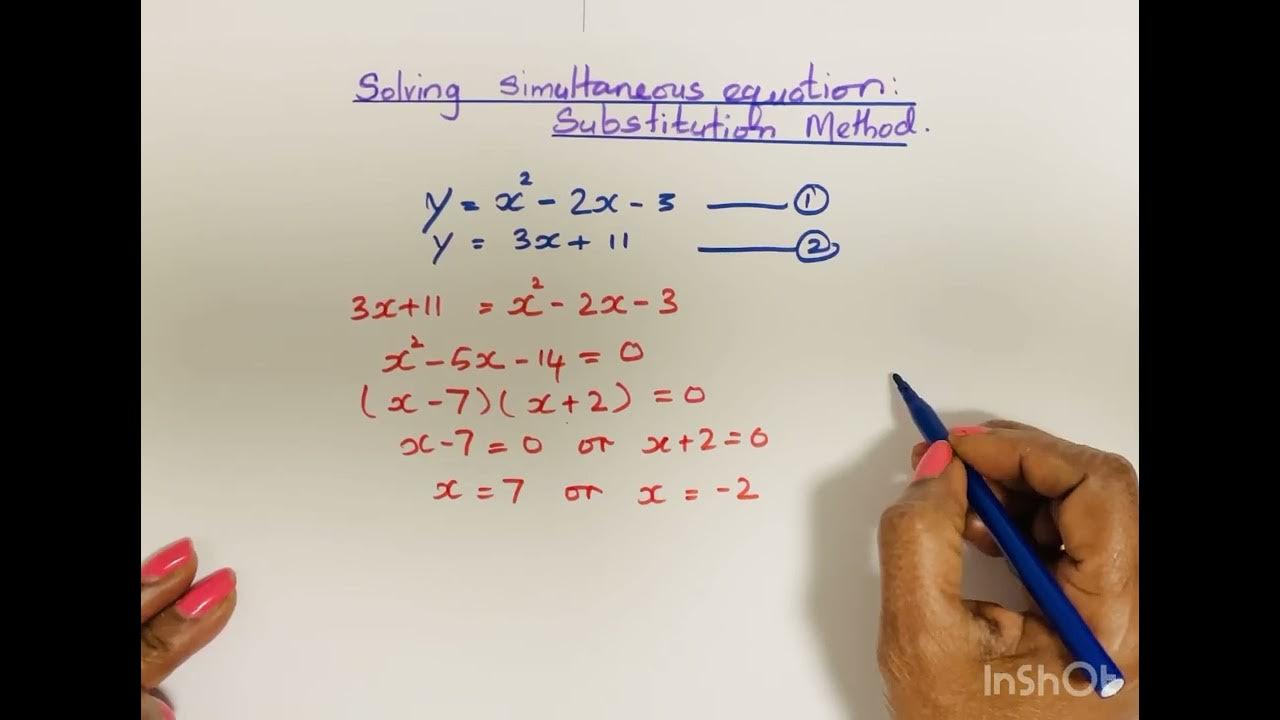 Solving simultaneous equation:
Substitution Method.
y = x² - 2x - 3 ——— ①
y = 3x + 11 ——— ②
3x+11 = x² - 2x - 3
x² - 5x - 14 = 0
(x - 7)(x + 2) = 0
x - 7 = 0 or x + 2 = 0
x = 7 or x = -2
InShOt